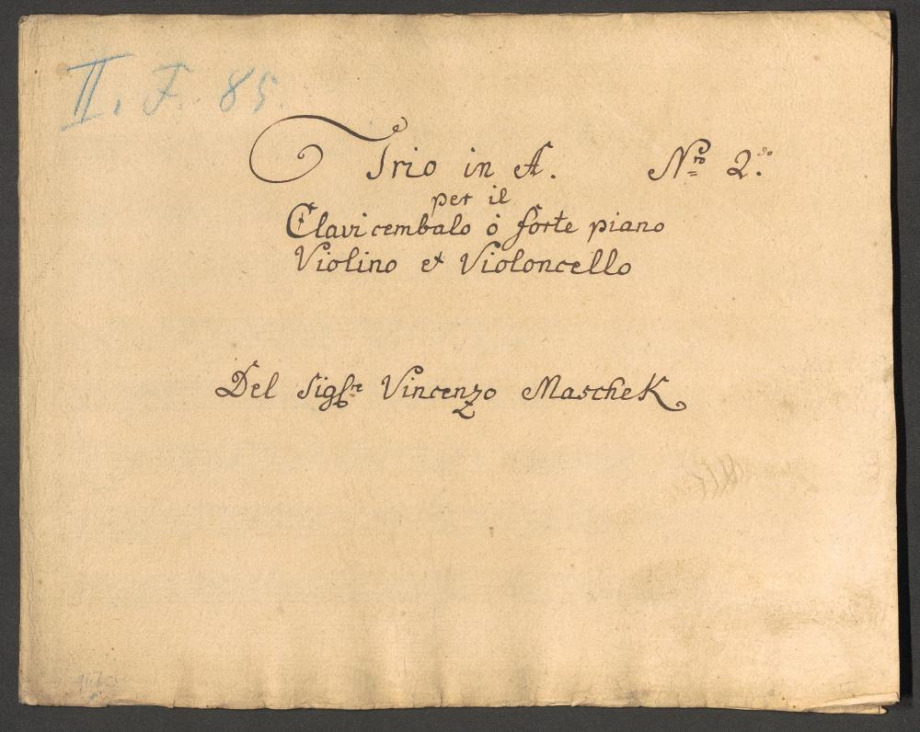 II. F. 85.
Trio in A. Nro 2do
per il
Clavicembalo ò forte piano
Violino et Violoncello
Del Sigre Vincenzo Maschek